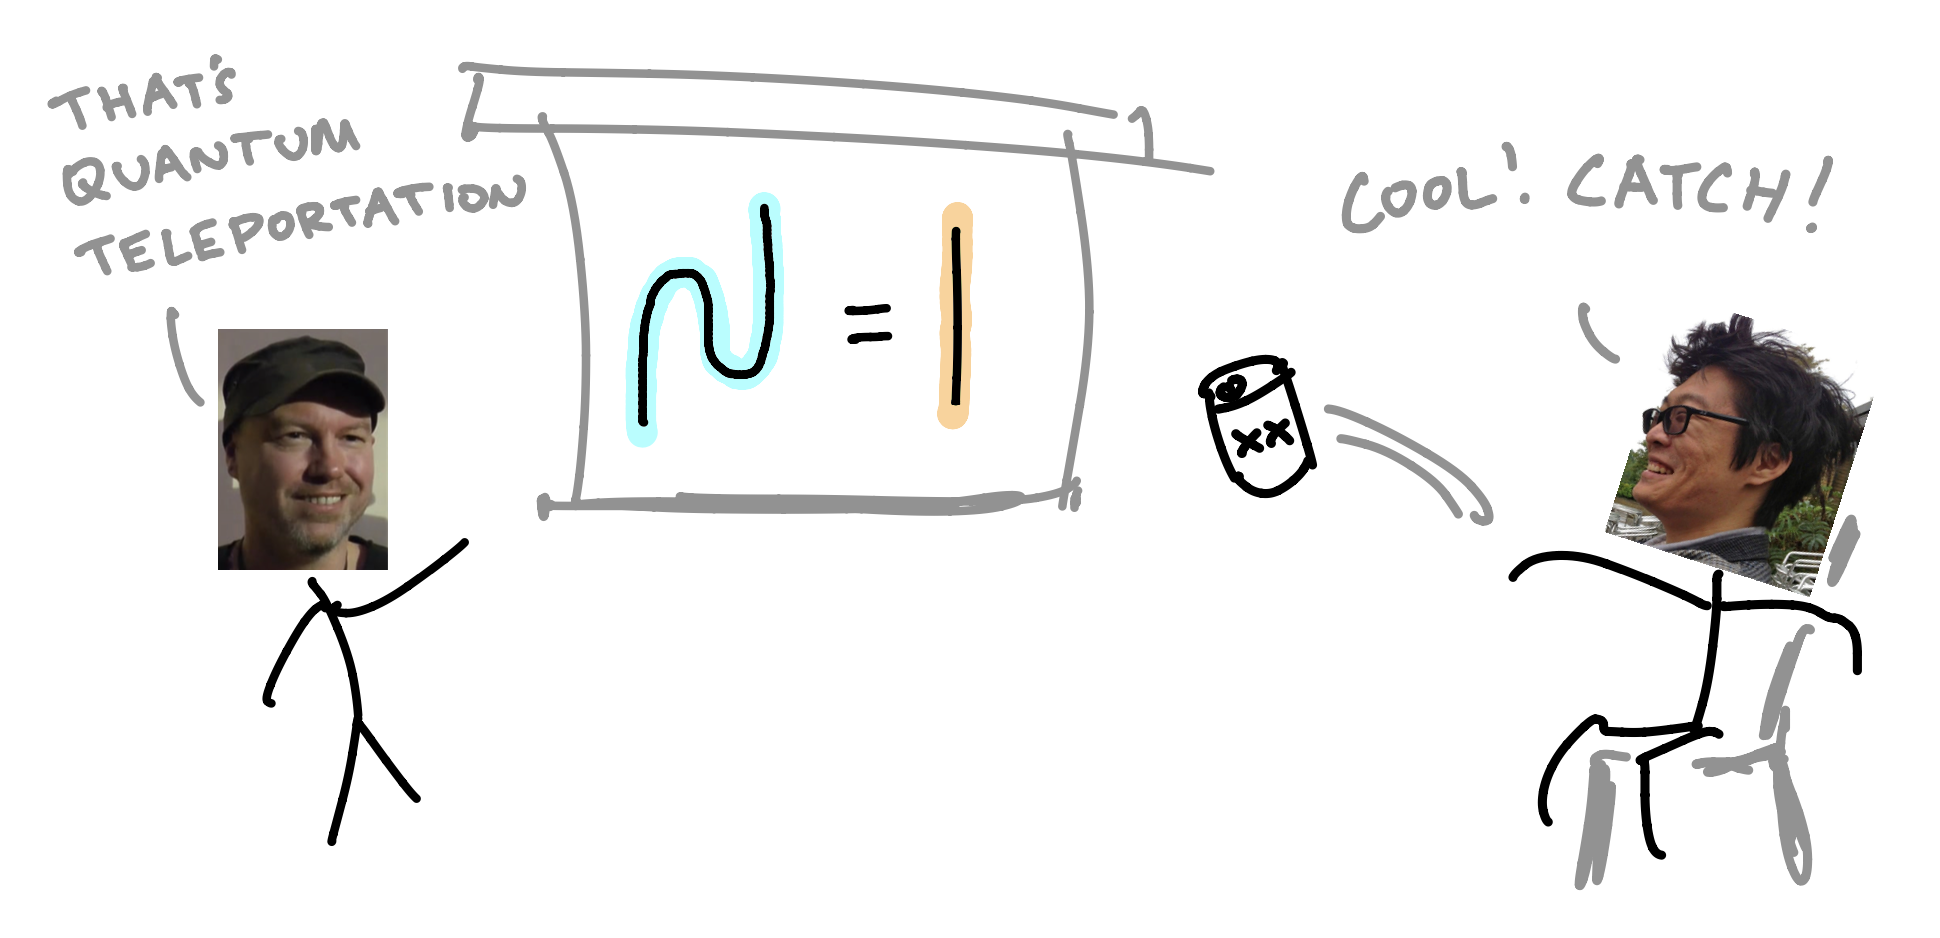 THAT'S
QUANTUM
TELEPORTATION
=
COOL! CATCH!
XX